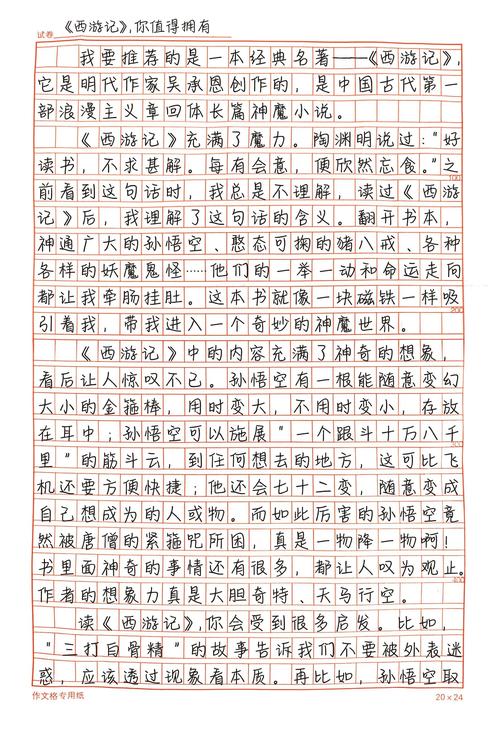 《西游记》,你值得拥有
试卷
我要推荐的是一本经典名著——《西游记》,
它是明代作家吴承恩创作的，是中国古代第一
部浪漫主义章回体长篇神魔小说。
《西游记》充满了魔力。陶渊明说过:"好
读书，不求甚解。每有会意，便欣然忘食。"之
100
前看到这句话时，我总是不理解，读过《西游
记》后，我理解了这句话的含义。翻开书本，
神通广大的孙悟空、憨态可掬的猪八戒、各种
各样的妖魔鬼怪……他们的一举一动和命运走向
都让我牵肠挂肚。这本书就像一块磁铁一样吸
200
引着我，带我进入一个奇妙的神魔世界。
《西游记》中的内容充满了神奇的想象，
看后让人惊叹不已。孙悟空有一根能随意变幻
大小的金箍棒，用时变大，不用时变小，存放
在耳中；孙悟空可以施展"一个跟斗十万八千
300
里"的筋斗云，到任何想去的地方，这可比飞
机还要方便快捷；他还会七十二变，随意变成
自己想成为的人或物。而如此厉害的孙悟空竟
然被唐僧的紧箍咒所困，真是一物降一物啊！
书里面神奇的事情还有很多，都让人叹为观止。
400
作者的想象力真是大胆奇特、天马行空。
读《西游记》,你会受到很多启发。比如，
"三打白骨精"的故事告诉我们不要被外表迷
惑，应该透过现象看本质。再比如，孙悟空取
作文格专用纸
20×24